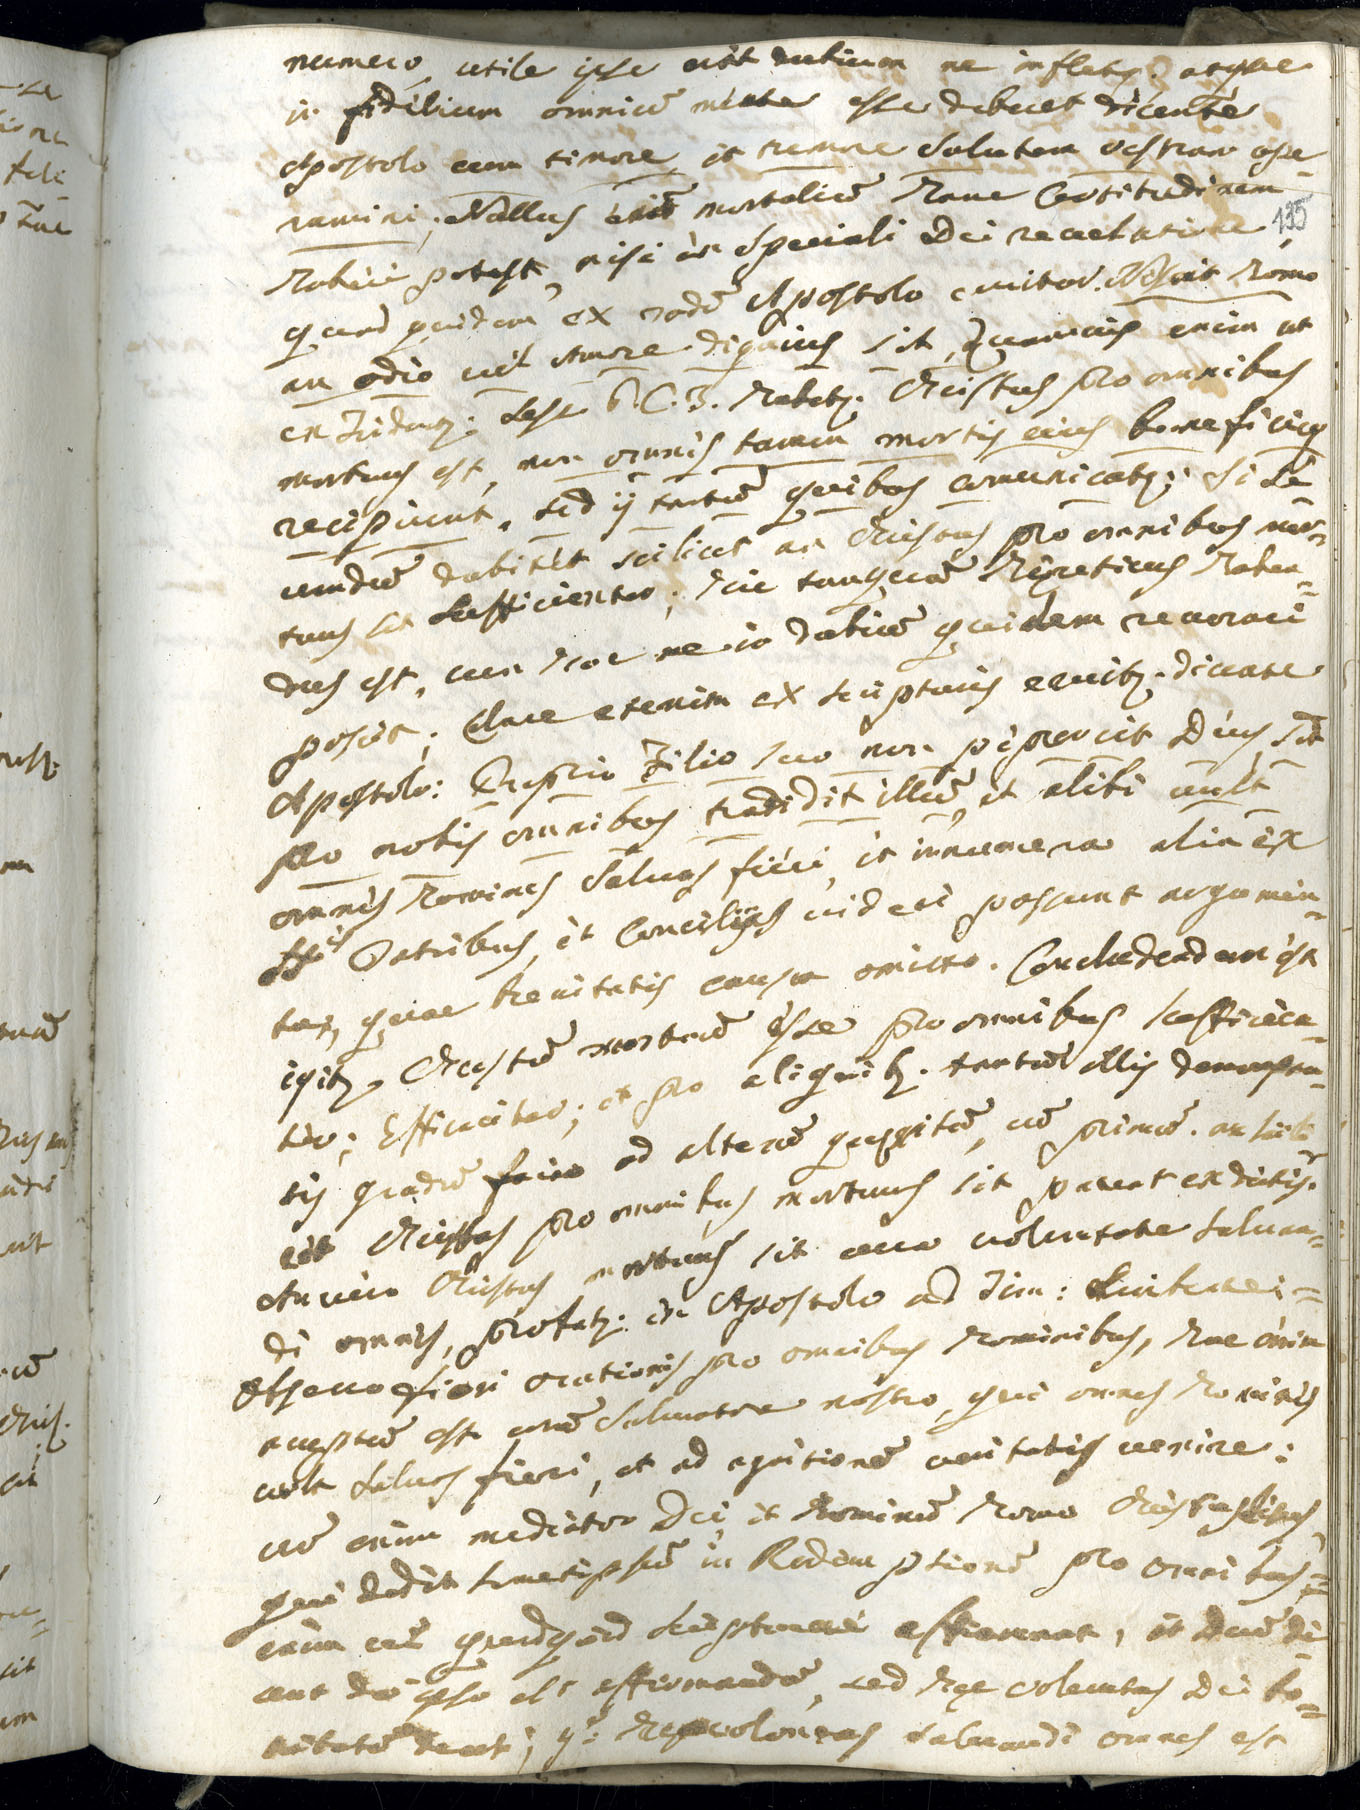 numero, utile ipse est dubium ne infletz. atque
in fidelium omniū mente esse debeat dicente
Apostolo cum timore, et tremore salutem vestram ope-
ramini; Nullus enim mortaliū hanc certitudinem
135
habere potest, nisi ex speciali Dei revelatione,
quod quidem ex eodē Apostolo Nescit homo
an odio vel amore dignus sit, quamvis enim ut
ex Trident: sess 6. C. 3. habetz. Christus pro omnibus
mortuus est, non omnes tamen mortis eius beneficium
recipiunt, sed ij tantū quibus comunicatz; si se-
cundū dubitet scilicet an Christus pro omnibus mor-
tuus sit sufficienter, hic tanquā hereticus haben-
dus est, cum hoc ne in dubiū quidem revocari
possit; Clare etenim ex scripturis dicente
Apostolo: Proprio Filio suo non pepercit Deus, sed
pro nobis omnibus tradidit illū, et alibi vult
omnes homines salvos fieri, et innumera alia ex
Patribus, et Concilijs videri possunt argumen-
ta, quae brevitatis causa omitto. Concludendum est
igitz. Christū mortuū esse pro omnibus sufficien-
ter; Efficaciter; et pro aliquibz. tantū illis demonstra-
tis gradū facio ad alterū quaesitū, nā primū. an
Christus pro omnibus mortuus sit patet ex dictis.
An vero Christus mortuus sit vera voluntate salvan-
di omnes, probatz. ex Apostolo ad Tim:
Obsecro fieri orationes pro omnibus hominibus, hoc enim
acceptū est corā salvatore nostro, qui omnes homines
vult salvos fieri, et ad agnitionē veritatis venire:
unū enim mediator Dei, et hominū homo Christus Iesus,
qui dedit semetipsū in Redemptionē pro omnibus;
enim quidquid scripturae affirmant, et Deū di-
cunt de ipso est affirmandū, sed haec voluntas Dei bo-
nitatē decet; voluntas salvandi omnes est